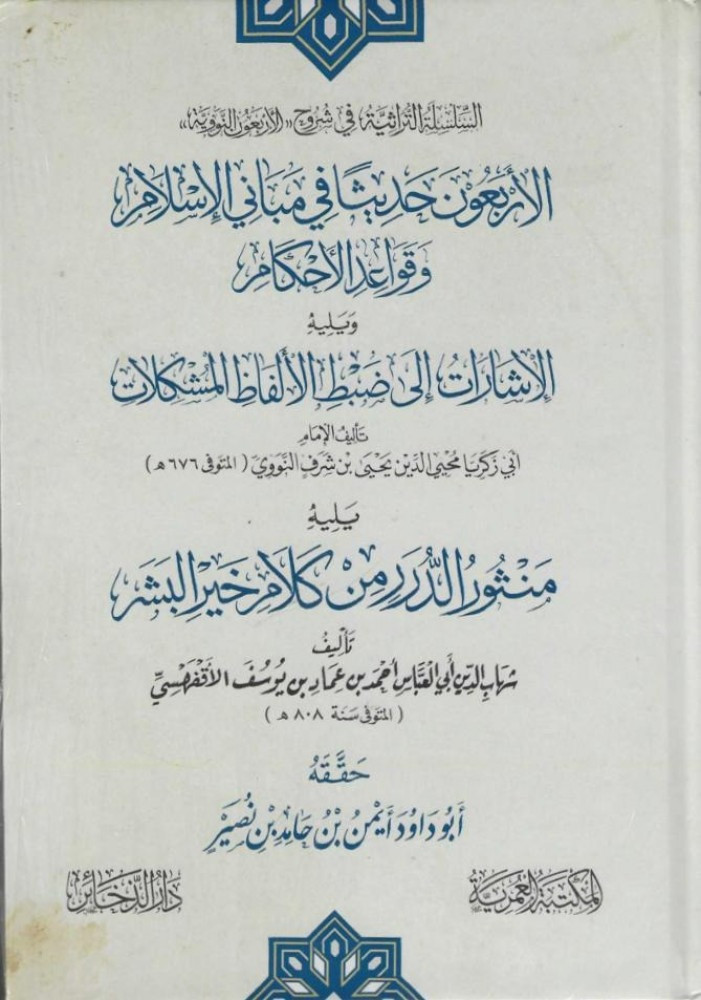 السِّلْسِلَةُ التُّرَاثِيَّةُ فِي شُرُوحِ «الأَرْبَعُونَ النَّوَوِيَّة»
الأَرْبَعُونَ حَدِيثًا فِي مَبَانِي الإِسْلَامِ
وَقَوَاعِدِ الأَحْكَامِ
وَيَلِيهِ
الإِشَارَاتُ إِلَى ضَبْطِ الأَلْفَاظِ المُشْكِلَاتِ
تَأْلِيفُ الإِمَامِ
أَبِي زَكَرِيَّا مُحْيِي الدِّين يَحْيَى بْن شَرَفٍ النَّوَوِيّ (المتوفى ٦٧٦ هـ)
يَلِيهِ
مَنْثُورُ الدُّرَرِ مِنْ كَلَامِ خَيْرِ البَشَرِ
تَأْلِيفُ
شِهَابُ الدِّين أَبِي العَبَّاسِ أَحْمَد بن عِمَاد بن يُوسُفَ الأَقْفَهْسِيِّ
(المتوفى سنة ٨٠٨ هـ)
حَقَّقَهُ
أَبُو دَاوُد أَيْمَنُ بْنُ حَامِدِ بْنِ نُصَيْرٍ
المَكْتَبَةُ العُمَرِيَّةُ
دَارُ الذَّخَائِرِ